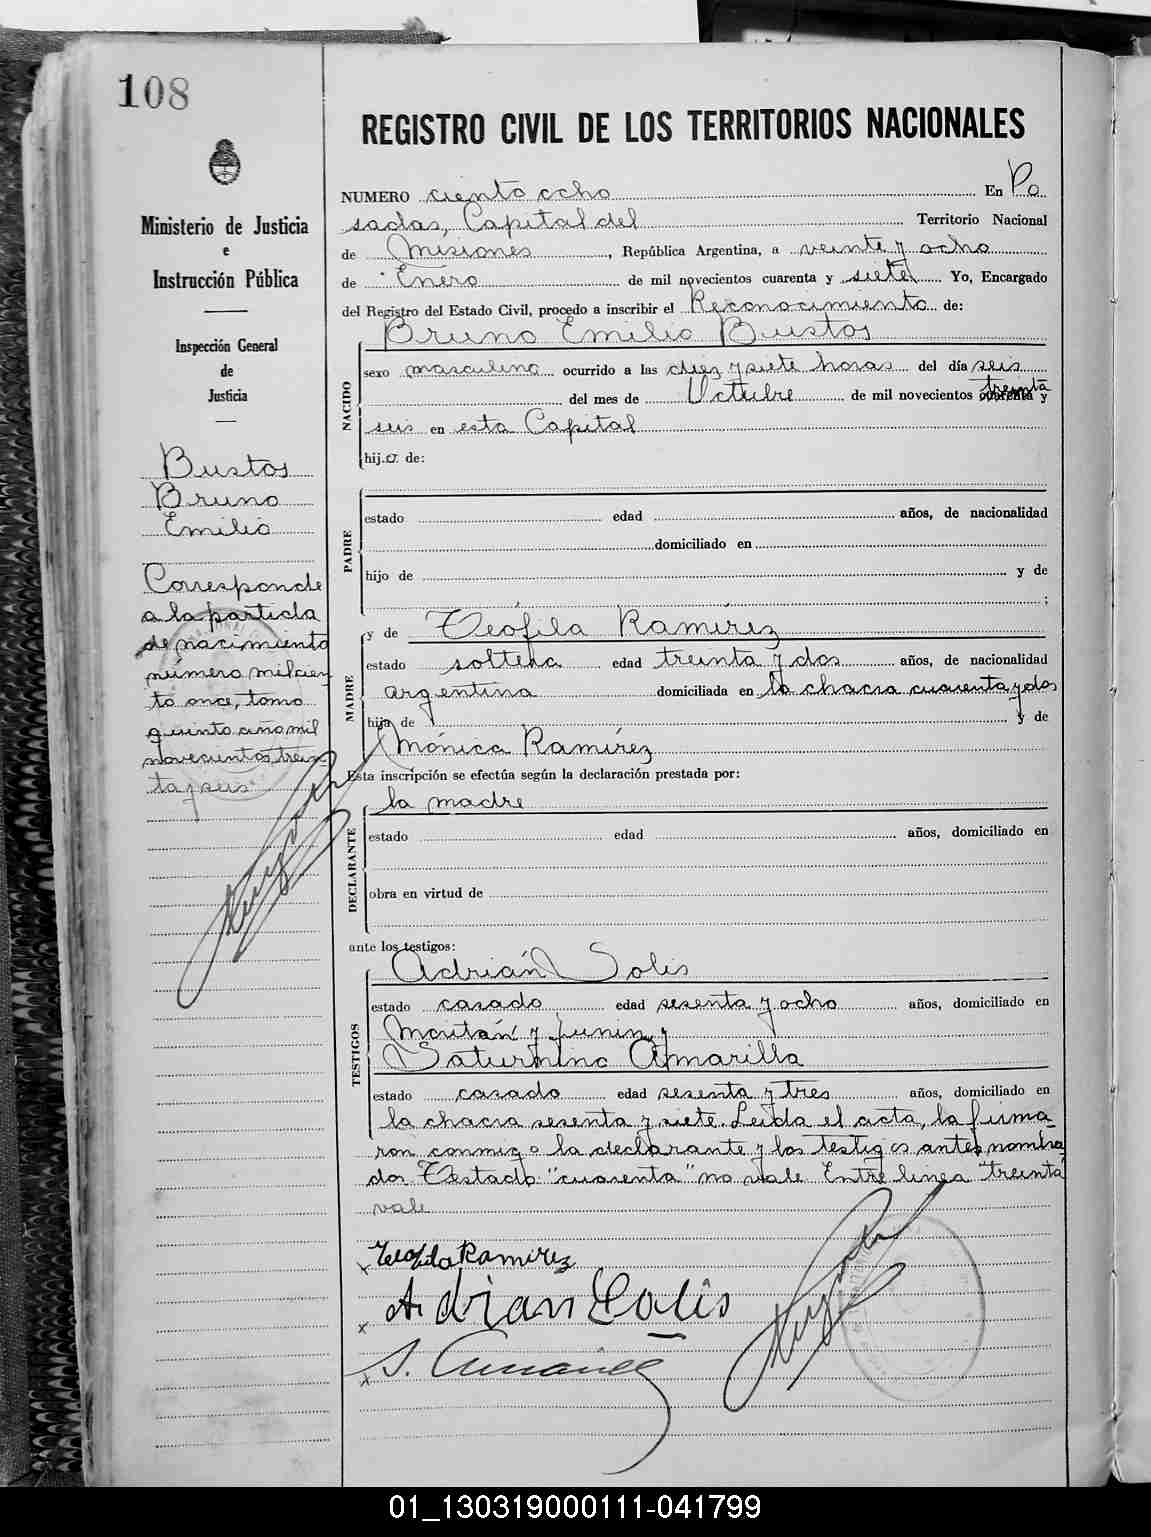 108
REGISTRO CIVIL DE LOS TERRITORIOS NACIONALES
Ministerio de Justicia
e
Instrucción Pública
Inspección General
de
Justicia
Bustos
Bruno
Emilio
Corresponde
a la partida
de nacimiento
número mil cien
to once, tomo
quinto año mil
novecientos trein
ta y seis
NUMERO ciento ocho En Po
sadas, Capital del Territorio Nacional
de Misiones, República Argentina, a veinte y ocho
de Enero de mil novecientos cuarenta y siete Yo, Encargado
del Registro del Estado Civil, procedo a inscribir el Reconocimiento de:
Bruno Emilio Bustos
NACIDO
sexo masculino ocurrido a las diez y siete horas del día seis
del mes de Octubre de mil novecientos cuarenta treinta y
seis en esta Capital
hijo de:
PADRE
estado edad años, de nacionalidad
domiciliado en
hijo de y de
;
MADRE
y de Teófila Ramírez
estado soltera edad treinta y dos años, de nacionalidad
argentina domiciliada en la chacra cuarenta y dos
hija de y de
Mónica Ramírez
Esta inscripción se efectúa según la declaración prestada por:
la madre
DECLARANTE
estado edad años, domiciliado en
obra en virtud de
ante los testigos:
Adrián Solis
TESTIGOS
estado casado edad sesenta y ocho años, domiciliado en
y Junin y
Saturnino Amarilla
estado casado edad sesenta y tres años, domiciliado en
la chacra sesenta y siete. Leída el acta, la firma-
ron conmigo la declarante y los testigos antes nombra
dos Testado "cuarenta" no vale. Entre linea "treinta"
vale
x Teofila Ramirez
x Adrian Solis
x S. Amarilla
01_130319000111-041799